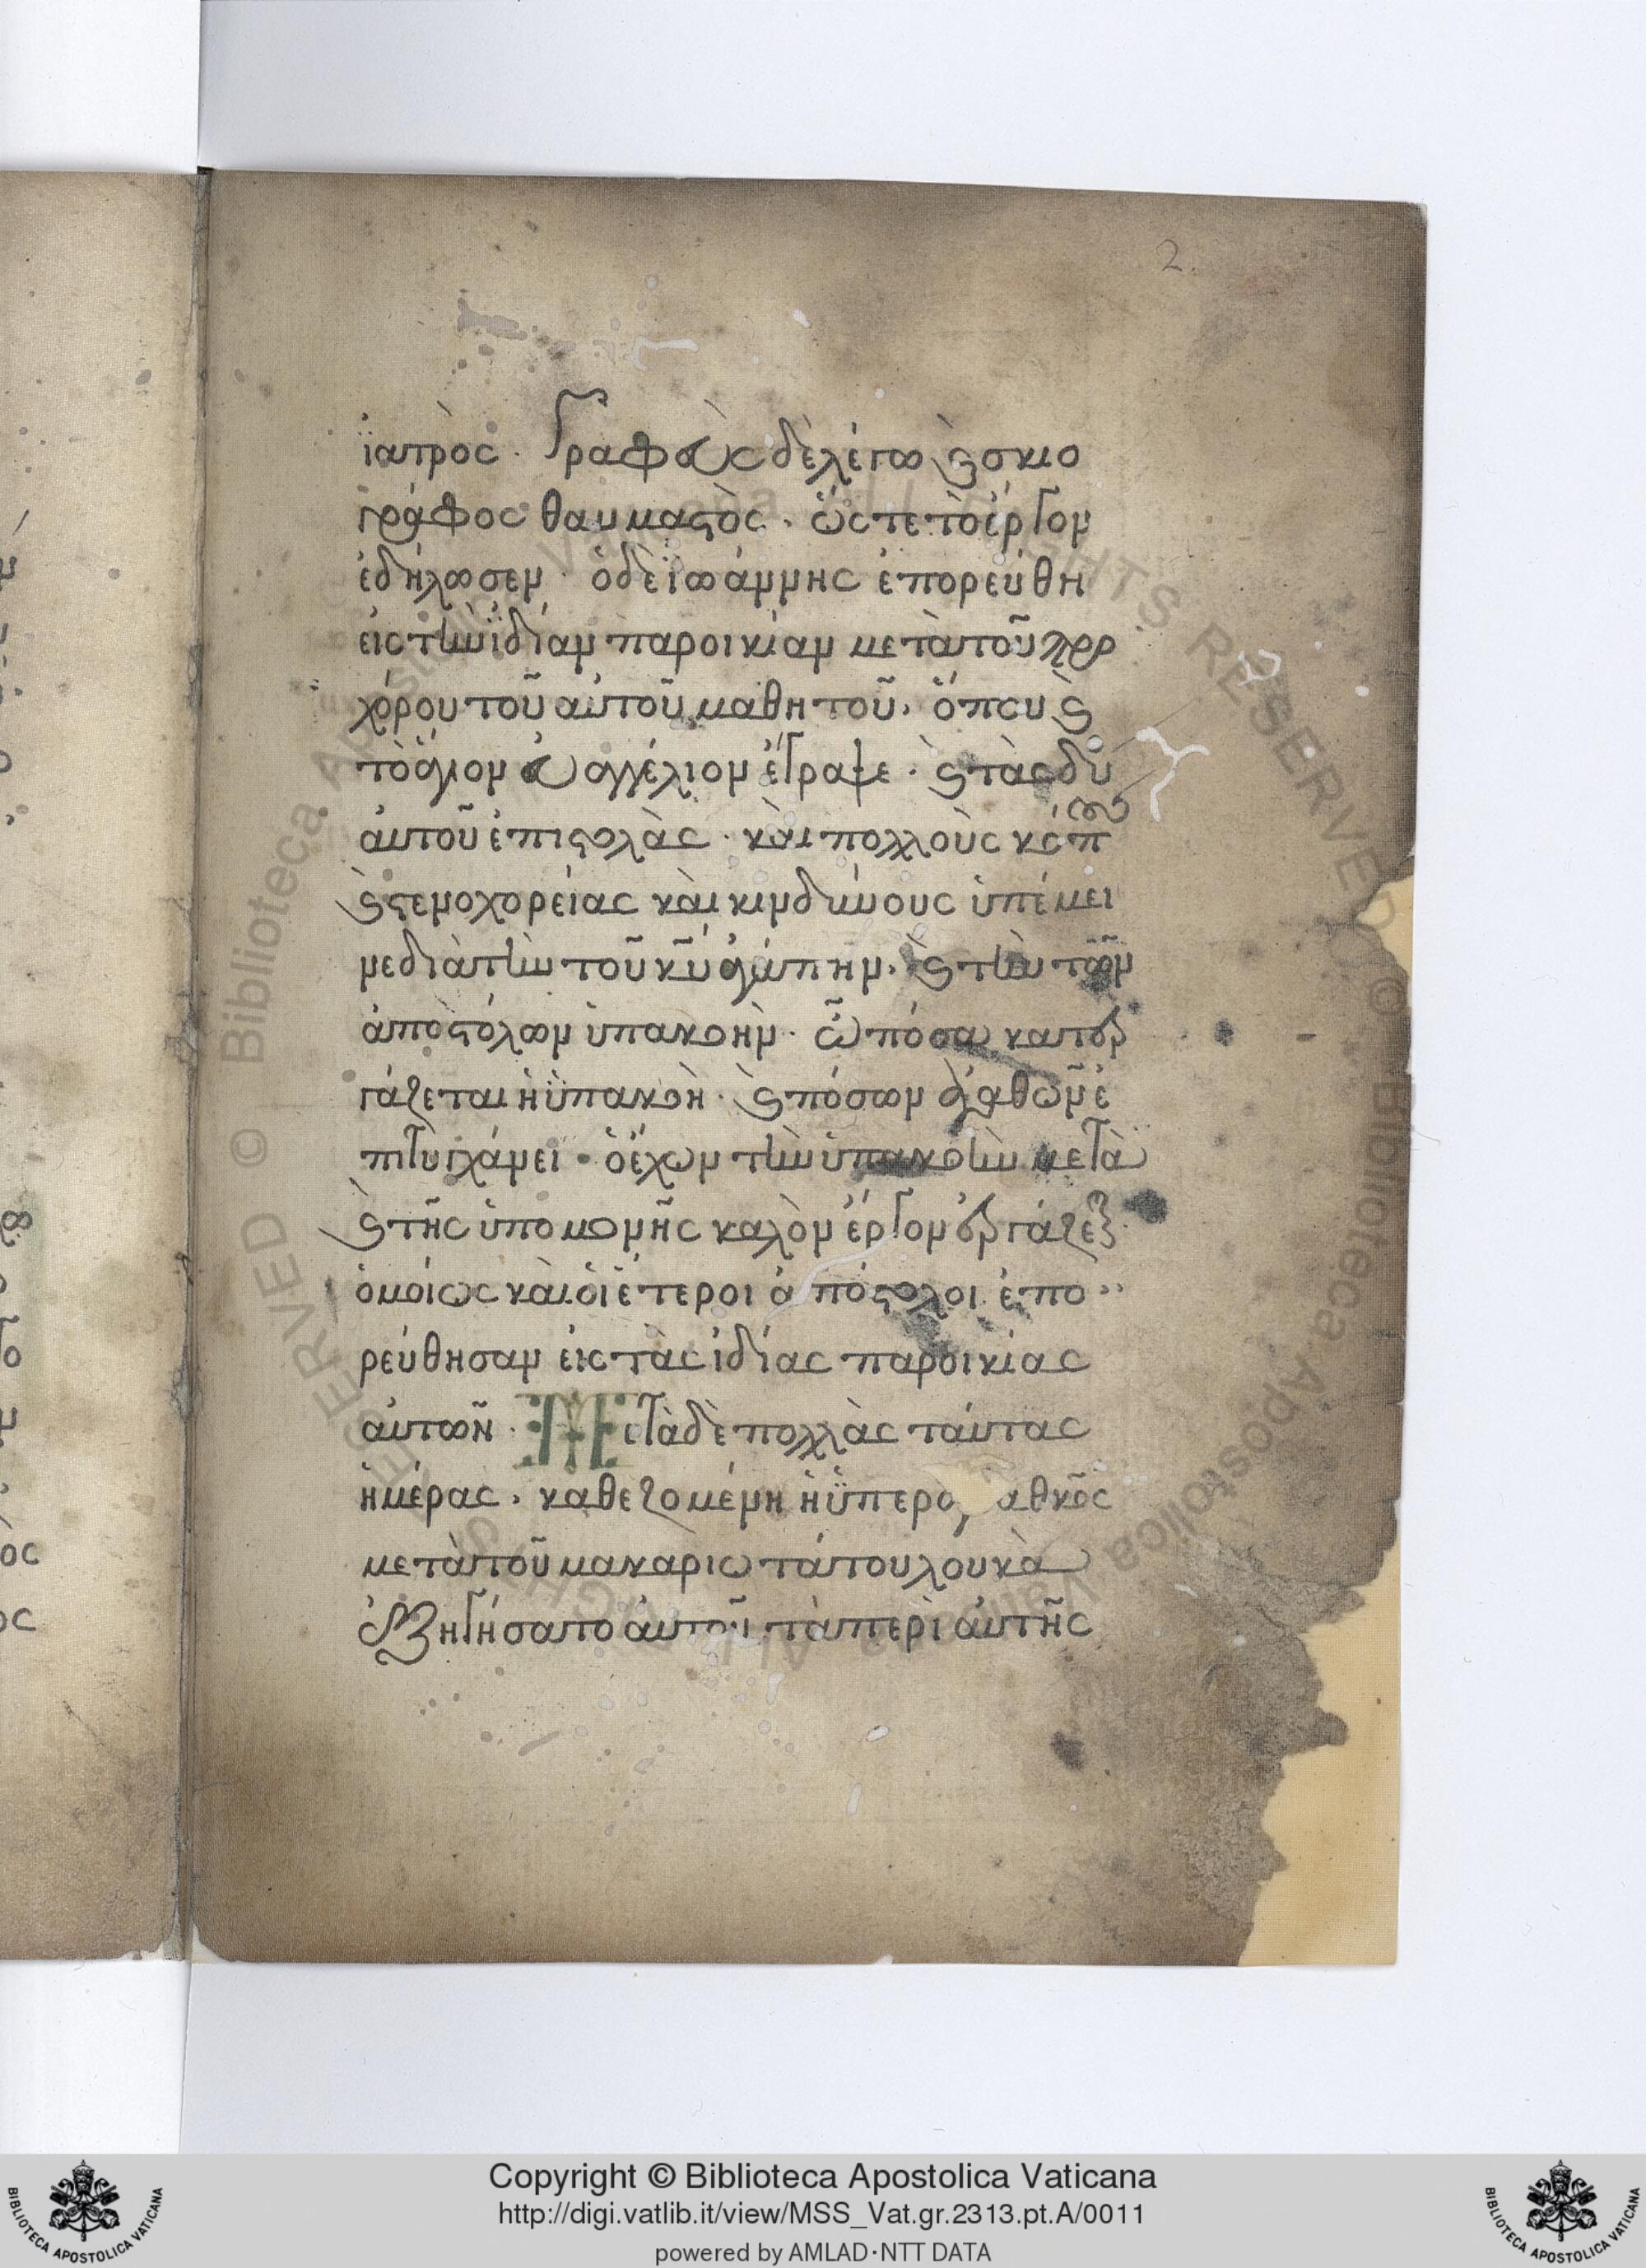 2
ϊατρὸς · Γραφεὺς δὲ λέγω ὲ σκιο
γράφος θαυμαστὸς · ὥς τε τὸ ἔργον
ἐδήλωσεν · ὁ δὲ ἰωάννης ἐπορεύθη
εἰς τὴν ϊδίαν παροικίαν μετὰ τοῦ προ
χόρου τοῦ αὐτοῦ μαθητοῦ, ὅπου ϛ
τὸ ἅγιον εὐαγγέλιον ἔγραψε · ϛ τὰς δύ
αὐτοῦ ἐπιστολὰς · καὶ πολλοὺς κόπ
ϛ στενοχορείας καὶ κινδύνους ὑπέμει
νε διὰ τὴν τοῦ κυ ἀγάπην, ϛ τὴν τῶν
ἀποστόλων ὑπακοὴν · ὦ πόσα κατερ
γάζεται ἡ ϋπακοὴ · ϛ πόσων ἀγαθῶν ἐ
πιτυγχάνει · ὁ ἔχων τὴν ὑπακοὴν μετὰ
ϛ τῆς ὑπομονῆς καλὸν ἔργον ἐργάζετ
ὁμοίως καὶ οἱ ἕτεροι ἀπόστολοι ἐπο
ρεύθησαν εἰς τὰς ἰδίας παροικίας
αὐτῶν · Μετὰ δὲ πολλὰς ταύτας
ἡμέρας, καθεζομένη ἡ ϋπερα αθκος
μετὰ τοῦ μακαριωτάτου λουκὰ
ἐξηγήσατο αὐτοῦ τὰ περὶ αὐτῆς
Copyright © Biblioteca Apostolica Vaticana
http://digi.vatlib.it/view/MSS_Vat.gr.2313.pt.A/0011
powered by AMLAD·NTT DATA
BIBLIOTECA APOSTOLICA VATICANA
BIBLIOTECA APOSTOLICA VATICANA